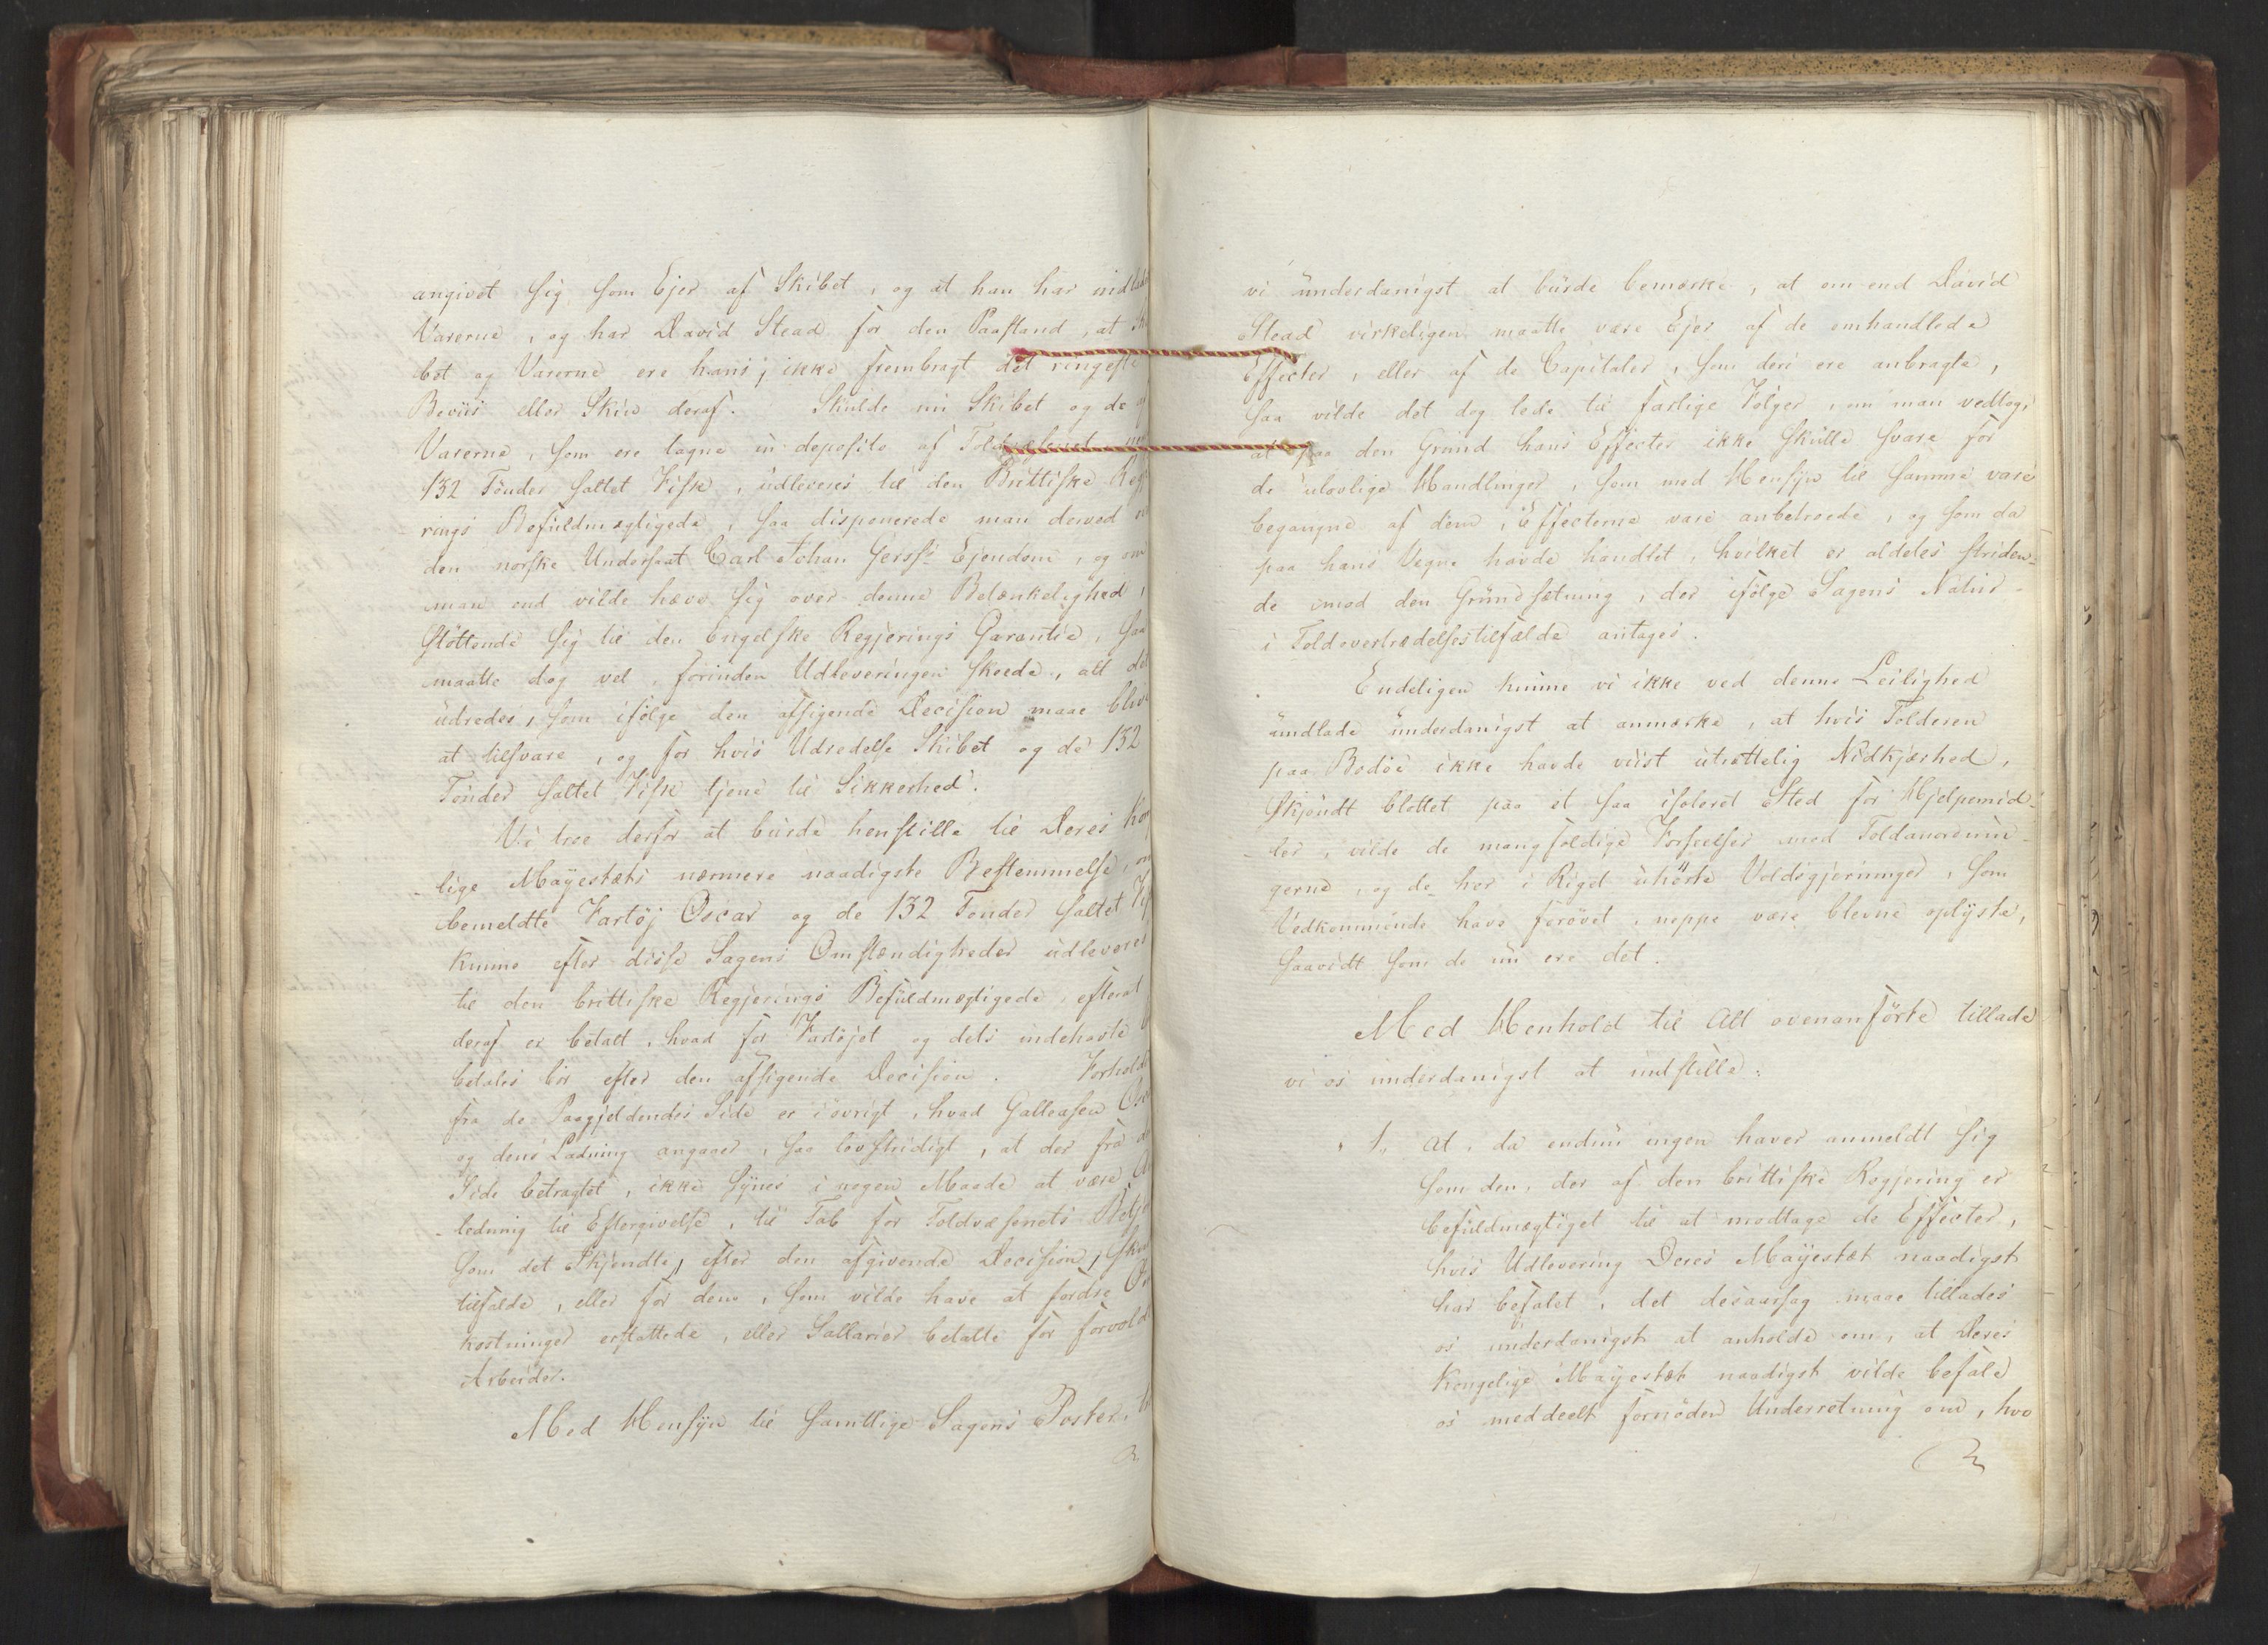 angivet sig som Ejer af Skibet, og at han har indladet
Varerne, og har David Stead for den Paastand, at Ski
bet og Varerne ere hans, ikke frembragt det ringeste
Beviis eller Skin deraf. Skulde nu Skibet og de
Varerne, som ere tagne in deposito af Toldvæsenet
132 Tönder saltet Fisk, udleveres til den Brittiske Regje
rings Befuldmægtigede, saa disponerede man derved
den norske Undersaat Carl Johan Gerss's Ejendom, og om
man end vilde hæve sig over denne Betænkelighed,
stöttende sig til den Engelske Regjerings Garantie, saa
maatte dog vel, forinden Udleveringen skeede, alt det
udredes, som ifölge den afsigende Decision maae blive
at tilsvare, og for hvis Udredelse Skibet og de 132
Tönder saltet Fisk tjene til Sikkerhed.
Vi troe derfor at burde henstille til Deres Konge
lige Mayestæts nærmere naadigste Bestemmelse, om
bemeldte Fartöj Oscar og de 132 Tönder saltet Fisk
kunne efter disse Sagens Omstændigheder udleveres
til den brittiske Regjerings Befuldmægtigede, efterat
deraf er betalt, hvad for Fartöjet og dets indehavte
betales bör efter den afsigende Decision. Forholdet
fra de Paagjeldendes Side er iövrigt, hvad Galleasen Oscar
og dens Ladning angaaer, saa lovstridigt, at der fra
Side betragtet, ikke synes i nogen Maade at være An
ledning til Eftergivelse, til Tab for Toldvæsenets Betje
som det Skjendte, efter den afgivende Decision, skal
tilfalde, eller for dem, som vilde have at fordre Om
kostninger erstattede, eller Sallarier betalte for forvoldte
Arbeider.
Med Hensyn til samtlige Sagens Poster,
vi underdanigst at burde bemærke, at om end David
Stead virkeligen maatte være Ejer af de omhandlede
Effecter, eller af de Capitaler, som deri ere anbragte,
saa vilde det dog lede til farlige Fölger, om man vedtog,
at paa den Grund hans Effecter ikke skulle svare for
de ulovlige Handlinger, som med Hensyn til samme vare
begangne af dem, Effecterne vare anbetroede, og som da
paa hans Vegne havde handlet, hvilket er aldeles striden-
de imod den Grundsætning, der ifölge Sagens Natur
i Toldovertrædelsestilfælde antages.
Endeligen kunne vi ikke ved denne Leilighed
undlade underdanigst at anmærke, at hvis Tolderen
paa Bodöe ikke havde viist utrættelig Nidkjærhed,
skjöndt blottet paa et saa isoleret Sted for Hjelpemid-
ler, vilde de mangfoldige Forseelser mod Toldanordnin-
gerne, og de her i Riget uhörte Voldsgjerninger, som
Vedkommende have forövet, neppe være blevne oplyste,
saavidt som de nu ere det.
Med Henhold til Alt ovenanförte tillade
vi os underdanigst at indstille:
1, at, da endnu ingen haver anmeldt sig
som den, der af den brittiske Regjering er
befuldmægtiget til at modtage de Effecter,
hvis Udlevering Deres Mayestæt naadigst
har befalet, det desaarsag maae tillades
os underdanigst at anholde om, at Deres
Kongelige Mayestæt naadigst vilde befale
os meddeelt fornöden Underretning om, hvo